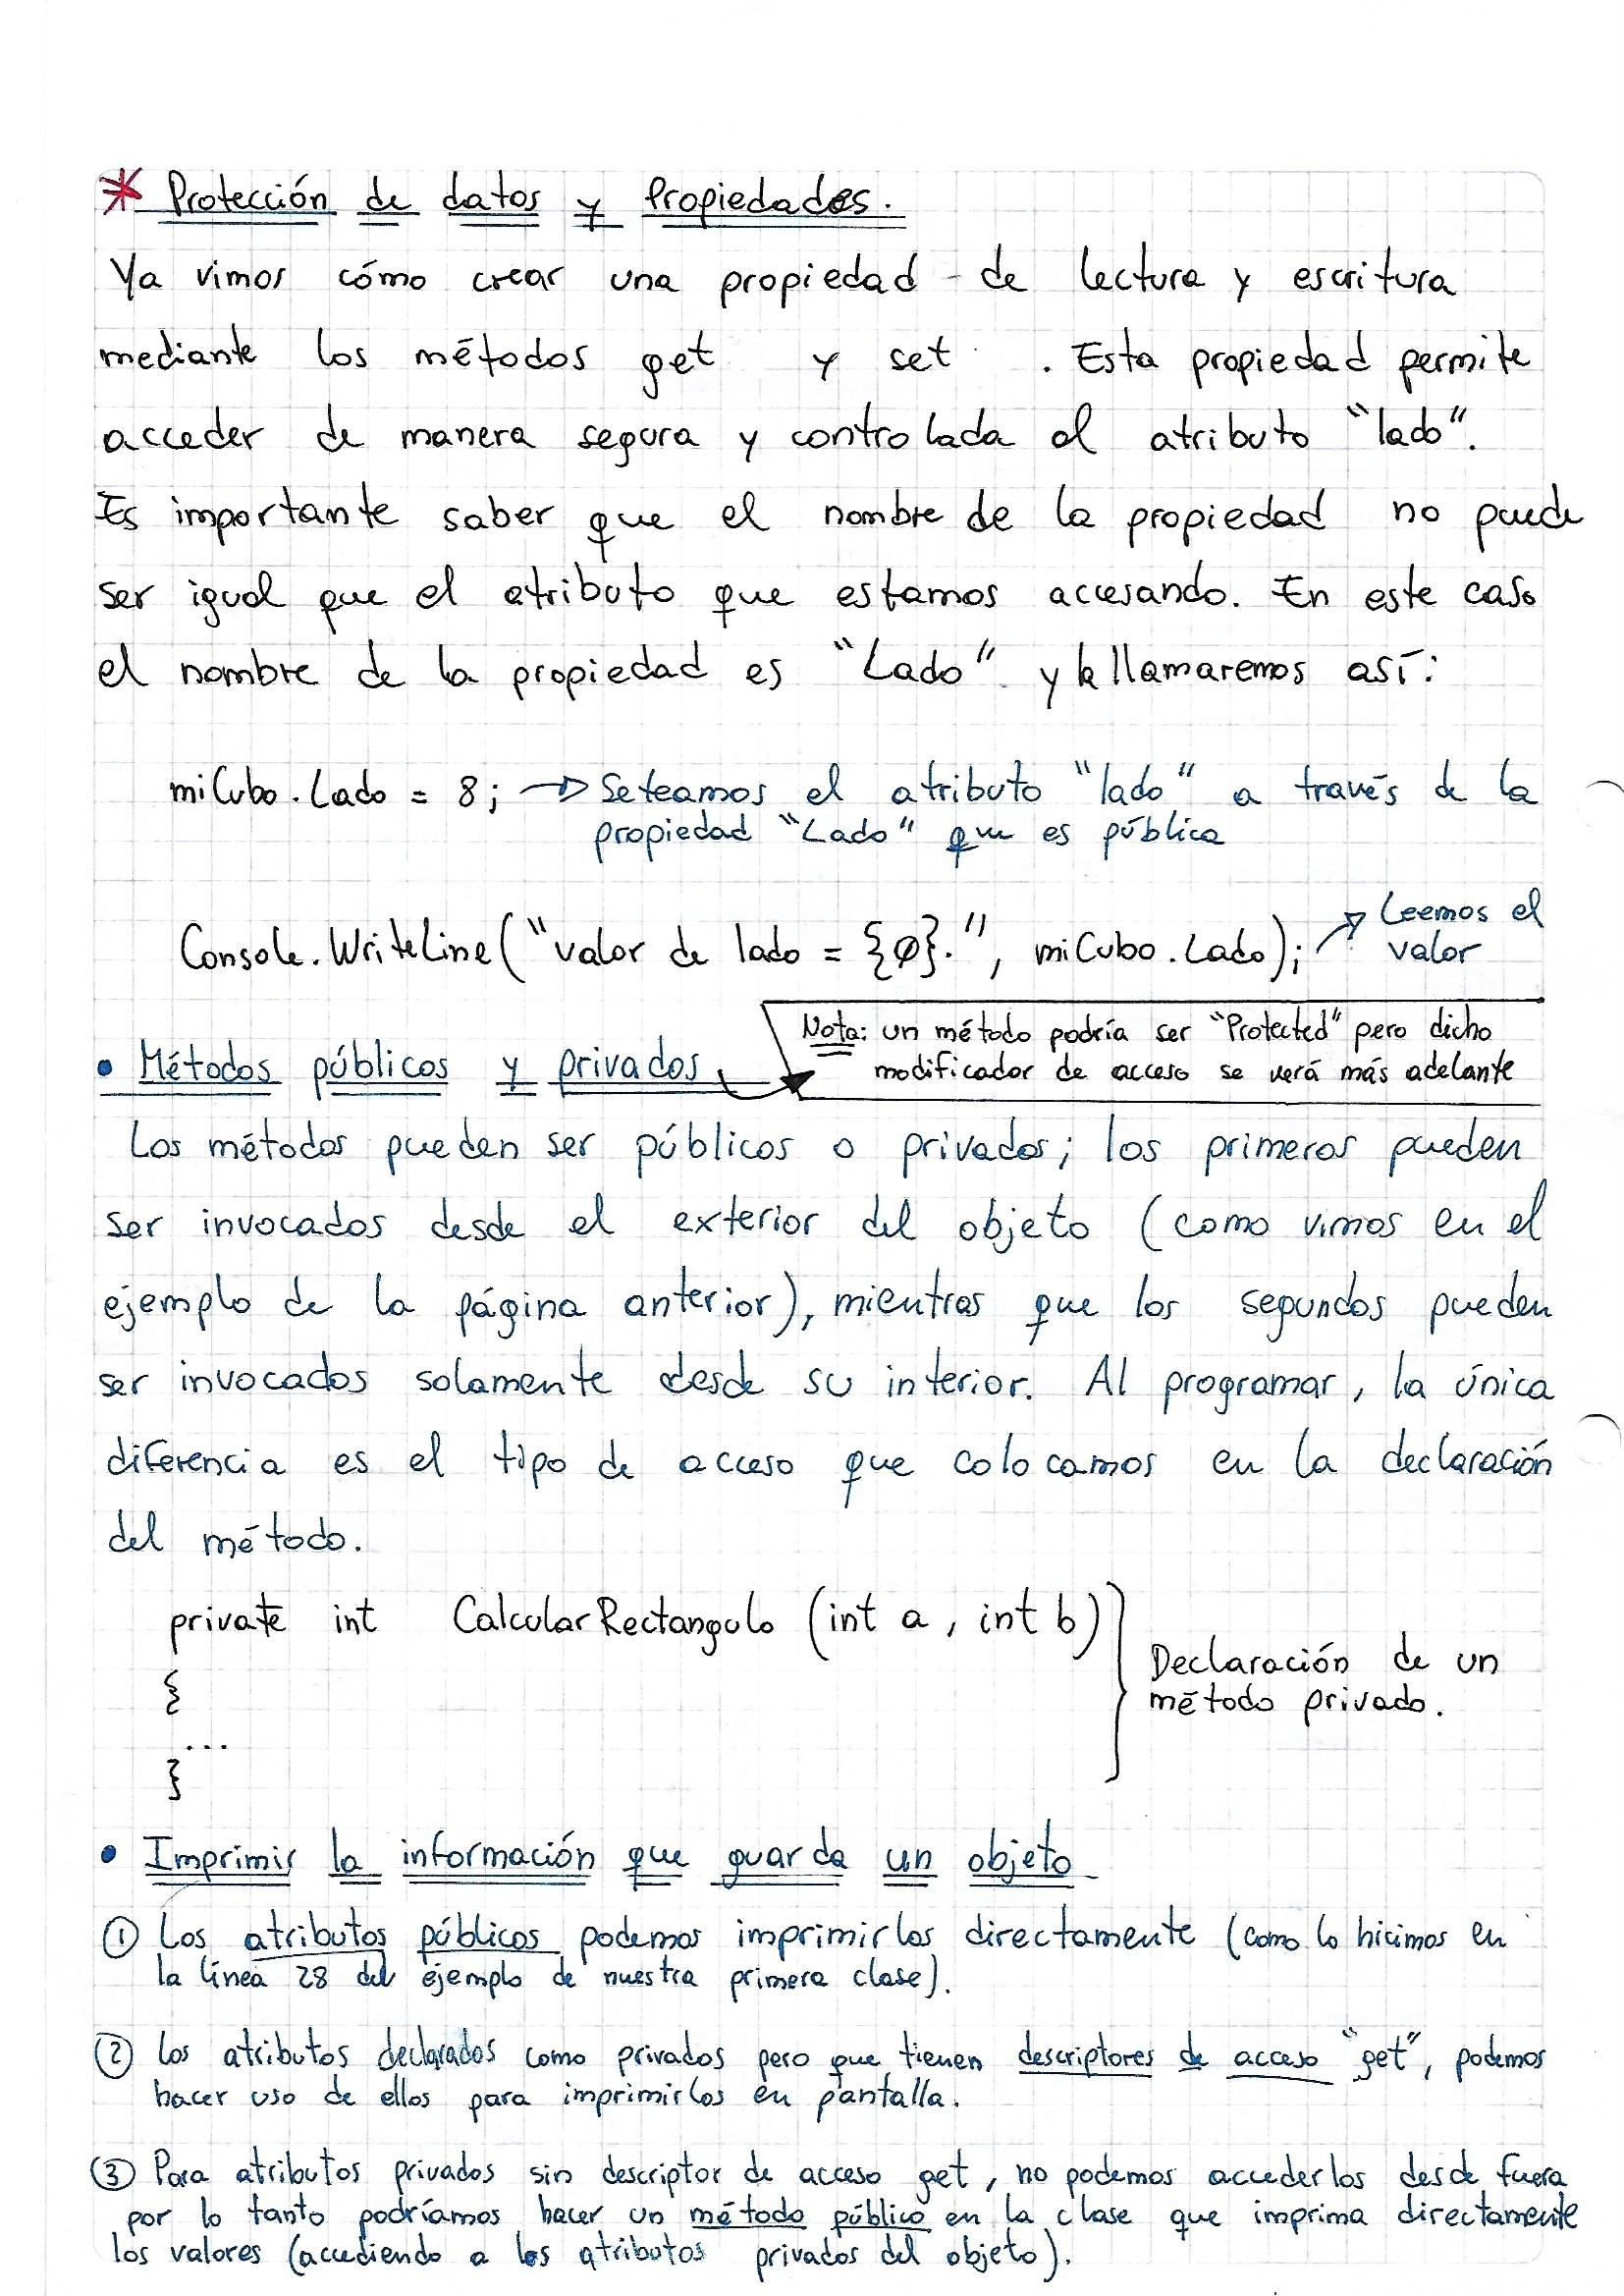 * Protección de datos y Propiedades.
Ya vimos cómo crear una propiedad de lectura y escritura
mediante los métodos get y set . Esta propiedad permite
acceder de manera segura y controlada al atributo "lado".
Es importante saber que el nombre de la propiedad no puede
ser igual que el atributo que estamos accesando. En este caso
el nombre de la propiedad es "Lado" y la llamaremos así:
miCubo.Lado = 8; → Seteamos el atributo "lado" a través de la
propiedad "Lado" que es pública
Console.WriteLine("valor de lado = {0}.", miCubo.Lado); → Leemos el
valor
Nota: un método podría ser "Protected" pero dicho
modificador de acceso se verá más adelante
• Métodos públicos y privados
Los métodos pueden ser públicos o privados; los primeros pueden
ser invocados desde el exterior del objeto (como vimos en el
ejemplo de la página anterior), mientras que los segundos pueden
ser invocados solamente desde su interior. Al programar, la única
diferencia es el tipo de acceso que colocamos en la declaración
del método.
private int CalcularRectangulo (int a, int b)
{
...
}
Declaración de un
método privado.
• Imprimir la información que guarda un objeto
① Los atributos públicos podemos imprimirlos directamente (como lo hicimos en
la línea 28 del ejemplo de nuestra primera clase).
② Los atributos declarados como privados pero que tienen descriptores de acceso "get", podemos
hacer uso de ellos para imprimirlos en pantalla.
③ Para atributos privados sin descriptor de acceso get, no podemos accederlos desde fuera
por lo tanto podríamos hacer un método público en la clase que imprima directamente
los valores (accediendo a los atributos privados del objeto).